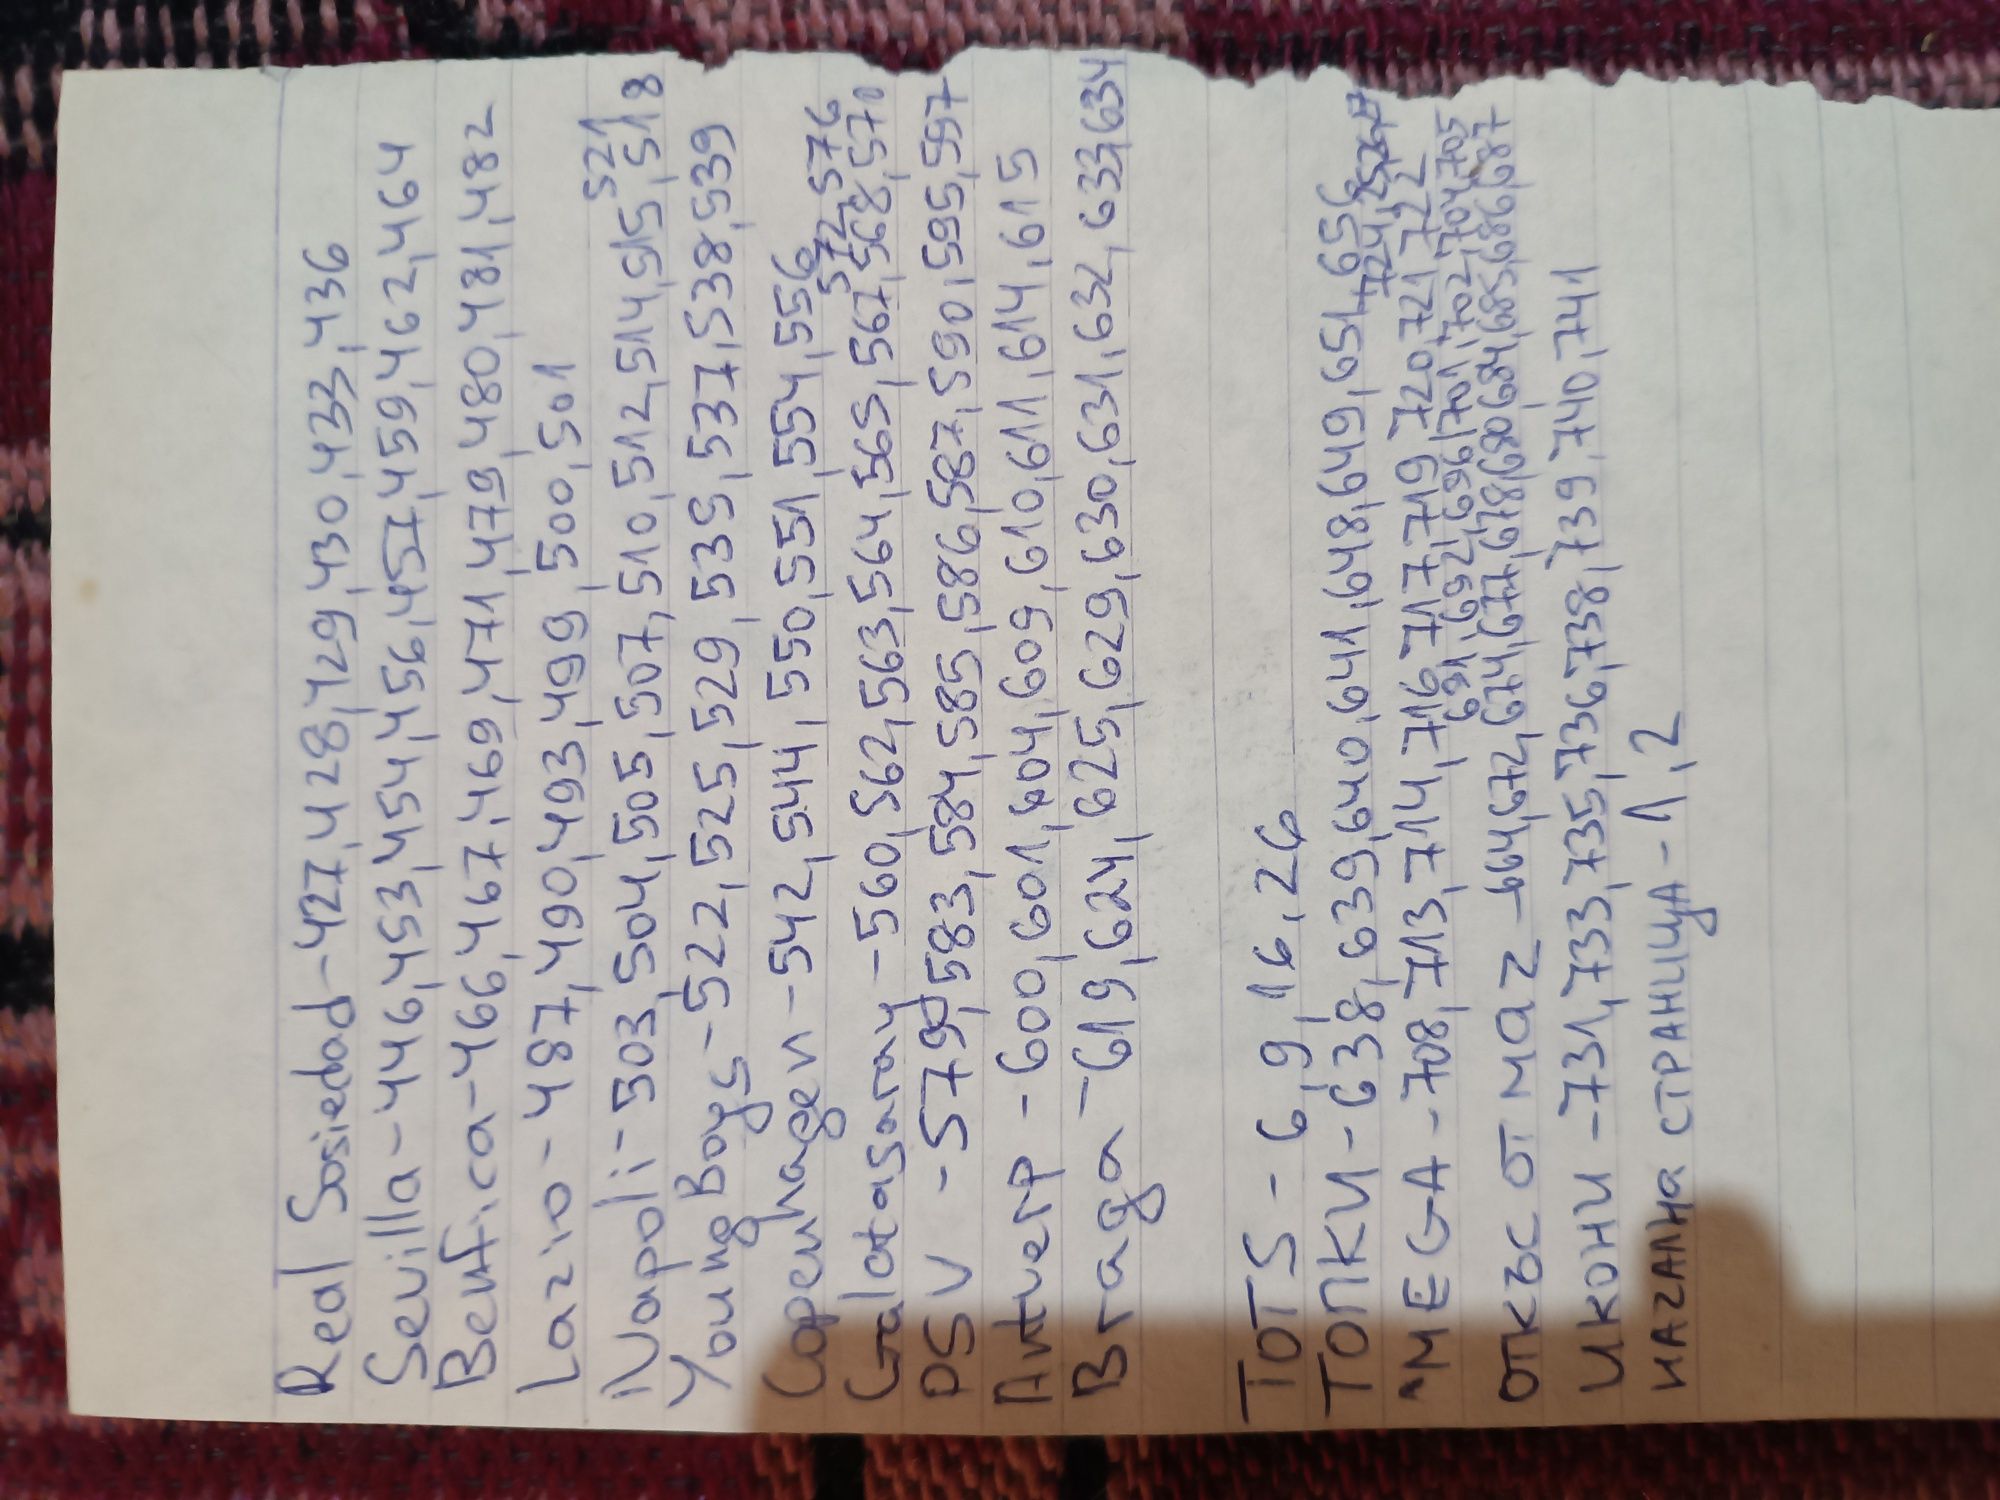 Real Sosiedad-427,428,429,430,433,436
Sevilla-446,453,454,456,457,459,462,464
Benfica-466,467,469,471,479,480,481,482
Lazio-487,490,493,499,500,501
Napoli-503,504,505,507,510,512,514,515,518
521
Young Boys-522,525,529,535,537,538,539
Copenhagen-542,544,550,551,554,556
572,576
Galatasaray-560,562,563,564,565,567,568,571
PSV-579,583,584,585,586,587,590,595,597
Antwerp-600,601,604,609,610,611,614,615
Braga-619,624,625,629,630,631,632,633,634
TOTS-6,9,16,26
ТОПКИ-638,639,640,641,648,649,651,656
724,
MEGA-708,713,714,716,717,719,720,721,722
691,692,696,701,702,704,705
ОТКЪС ОТ МАZ-664,672,674,677,678,680,684,685,686,687
ИКОНИ-731,733,735,736,738,739,740,741
НАZАЛНА СТРАНИЦА-1,2